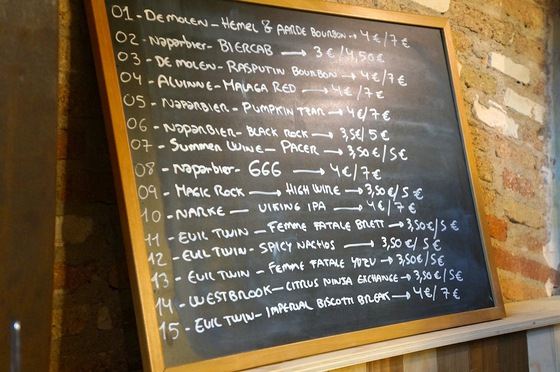 01 - DE MOLEN - HEMEL & AARDE BOURBON → 4€/7€
02 - NAPARBIER - BIERCAB → 3€/4,50€
03 - DE MOLEN - RASPUTIN BOURBON → 4€/7€
04 - ALVINNE - MALAGA RED → 4€/7€
05 - NAPARBIER - PUMPKIN TZAR → 4€/7€
06 - NAPARBIER - BLACK ROCK → 3,5€/5€
07 - SUMMER WINE - PACER → 3,50€/5€
08 - NAPARBIER - 666 → 4€/7€
09 - MAGIC ROCK → HIGH WIRE → 3,50€/5€
10 - NÄRKE — VIKING IPA → 4€/7€
11 - EVIL TWIN - FEMME FATALE BRETT → 3,50€/5€
12 - EVIL TWIN - SPICY NACHOS → 3,50€/5€
13 - EVIL TWIN - FEMME FATALE YUZU → 3,50€/5€
14 - WESTBROOK - CITRUS NINJA EXCHANGE → 3,50€/5€
15 - EVIL TWIN - IMPERIAL BISCOTTI BREAK → 4€/7€